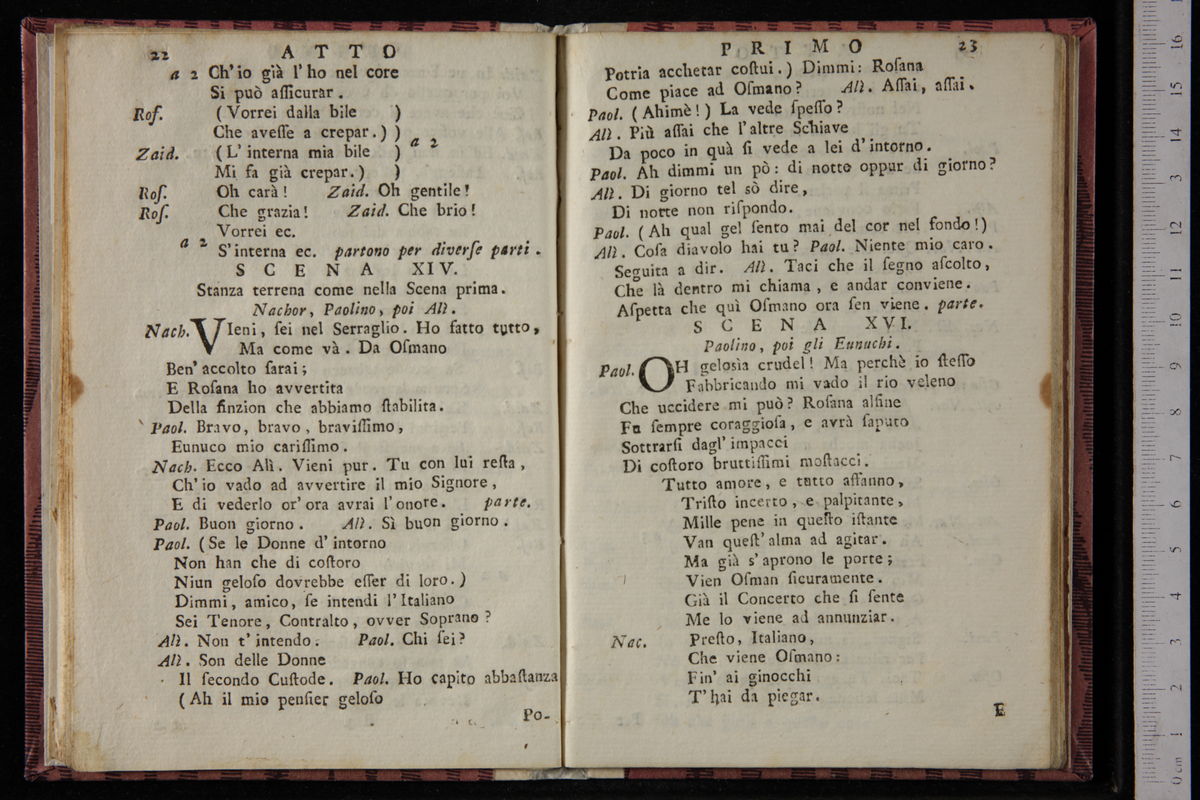 22 ATTO
a 2 Ch'io già l'ho nel core
Si può aſſicurar.
Roſ. (Vorrei dalla bile )
Che aveſſe a crepar.) )
a 2
Zaid. (L'interna mia bile )
Mi fa già crepar.) )
Roſ. Oh carà! Zaid. Oh gentile!
Roſ. Che grazia! Zaid. Che brio!
Vorrei ec.
a 2
S'interna ec. partono per diverſe parti.
SCENA XIV.
Stanza terrena come nella Scena prima.
Nachor, Paolino, poi Alì.
Nach. VIeni, ſei nel Serraglio. Ho fatto tutto,
Ma come và. Da Oſmano
Ben'accolto ſarai;
E Roſana ho avvertita
Della finzion che abbiamo ſtabilita.
Paol. Bravo, bravo, braviſſimo,
Eunuco mio cariſſimo.
Nach. Ecco Alì. Vieni pur. Tu con lui reſta,
Ch'io vado ad avvertire il mio Signore,
E di vederlo or'ora avrai l'onore. parte.
Paol. Buon giorno. Alì. Sì buon giorno.
Paol. (Se le Donne d'intorno
Non han che di coſtoro
Niun geloſo dovrebbe eſſer di loro.)
Dimmi, amico, ſe intendi l'Italiano
Sei Tenore, Contralto, ovver Soprano?
Alì. Non t'intendo. Paol. Chi ſei?
Alì. Son delle Donne
Il ſecondo Cuſtode. Paol. Ho capito abbaſtanza
(Ah il mio penſier geloſo
Po-
PRIMO 23
Potria acchetar coſtui.) Dimmi: Roſana
Come piace ad Oſmano? Alì. Aſſai, aſſai.
Paol. (Ahimè!) La vede ſpeſſo?
Alì. Più aſſai che l'altre Schiave
Da poco in quà ſi vede a lei d'intorno.
Paol. Ah dimmi un pò: di notte oppur di giorno?
Alì. Di giorno tel sò dire,
Di notte non riſpondo.
Paol. (Ah qual gel ſento mai del cor nel fondo!)
Alì. Coſa diavolo hai tu? Paol. Niente mio caro.
Seguita a dir. Alì. Taci che il ſegno aſcolto,
Che là dentro mi chiama, e andar conviene.
Aſpetta che quì Oſmano ora ſen viene. parte.
SCENA XVI.
Paolino, poi gli Eunuchi.
Paol. OH geloſia crudel! Ma perchè io ſteſſo
Fabbricando mi vado il rio veleno
Che uccidere mi può? Roſana alfine
Fu ſempre coraggioſa, e avrà ſaputo
Sottrarſi dagl'impacci
Di coſtoro bruttiſſimi moſtacci.
Tutto amore, e tutto affanno,
Triſto incerto, e palpitante,
Mille pene in queſto iſtante
Van queſt'alma ad agitar.
Ma già s'aprono le porte;
Vien Oſman ſicuramente.
Già il Concerto che ſi ſente
Me lo viene ad annunziar.
Nac. Preſto, Italiano,
Che viene Oſmano:
Fin' ai ginocchi
T'hai da piegar.
E
0 cm 1 2 3 4 5 6 7 8 9 10 11 12 13 14 15 16